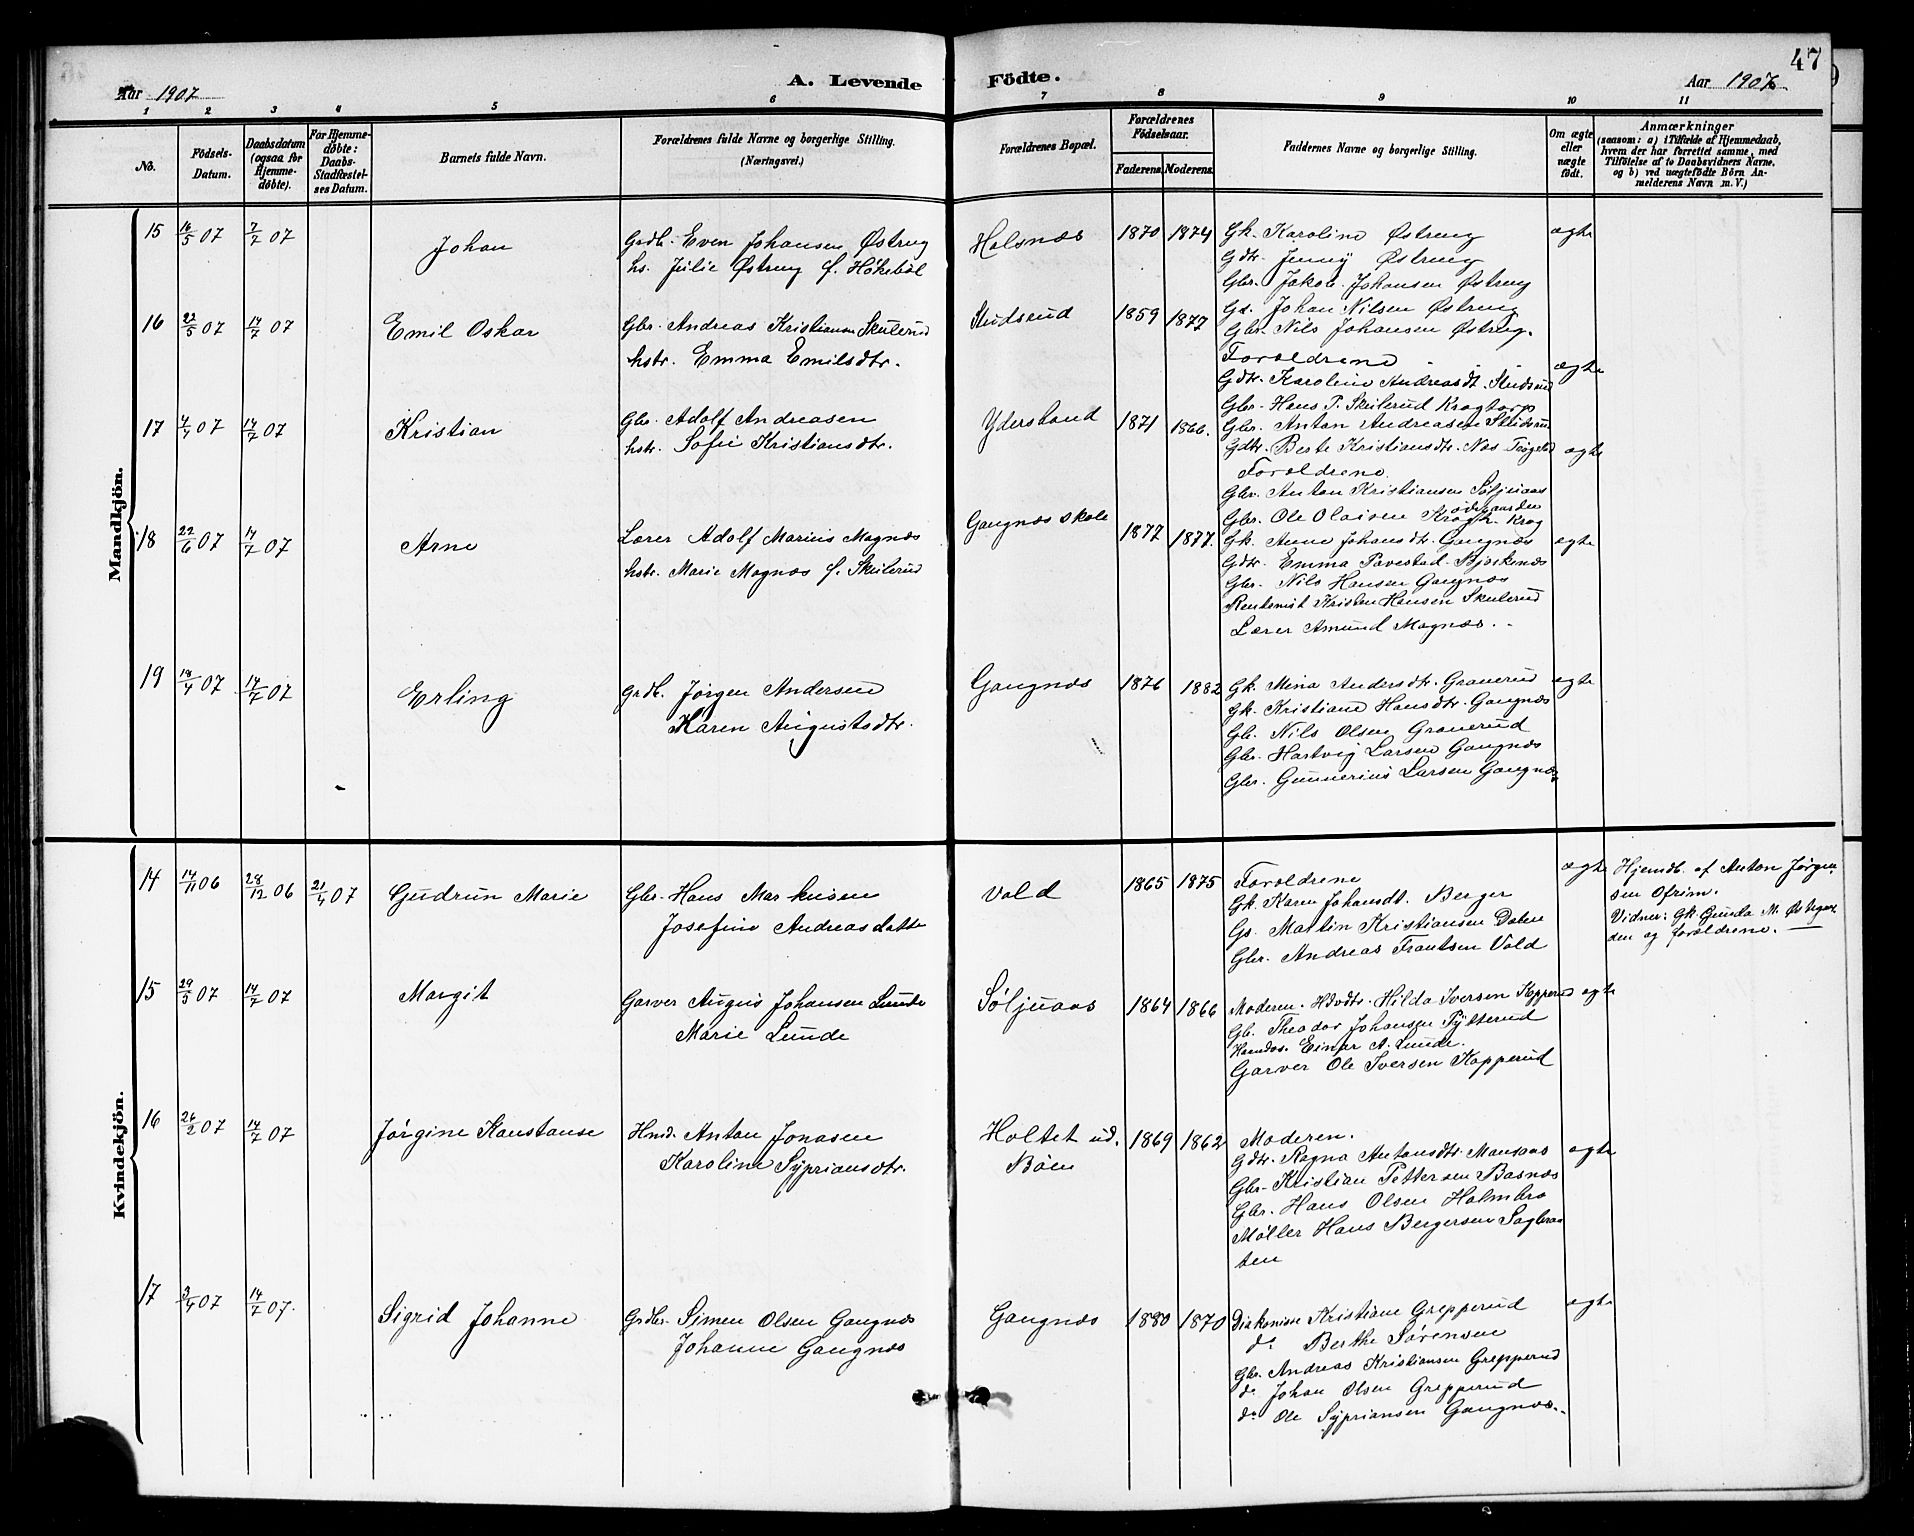 47
Aar 1907
A. Levende Födte.
Aar 1907
1 2 3 4 5 6 7 8 9 10 11
No.
Födsels-Datum.
Daabsdatum (ogsaa for Hjemmedöbte).
For Hjemmedöbte: Daabs-Stadfæstelses Datum.
Barnets fulde Navn.
Forældrenes fulde Navne og borgerlige Stilling. (Næringsvei.)
Forældrenes Bopæl.
Forældrenes Födselsaar.
Faderens. Moderens.
Faddernes Navne og borgerlige Stilling.
Om ægte eller uægte födt.
Anmærkninger
(saasom: a) i Tilfælde af Hjemmedaab, hvem der har forrettet samme, med Tilföielse af to Daabsvidners Navne, og b) ved uægtefödte Börn Anmelderens Navn m. V.)
Mandkjön.
15 16/5 07 7/7 07 Johan
Grdb. Even Johansen Østreng
hs. Julie Østreng f. Høkebøl
Holsnæs 1870 1874
Gk. Karoline Østreng
Gdtr. Jenny Østreng
Gbr. Jakob Johansen Østreng
Gs. Johan Nilsen Østreng
Gbr. Nils Johansen Østreng.
ægte
16 22/5 07 14/7 07 Emil Oskar
Gbr. Andreas Kristiansen Skulerud
hstr. Emma Emilsdtr.
Studsrud 1859 1877
Forældrene
Gdtr. Karoline Andreasdt. Studsrud
Gbr. Hans P. Skulerud Krogtorp
Gbr. Anton Andreasen
ægte
17 14/7 07 Kristian
Gbr. Adolf Andreasen
hstr. Sofie Kristiansdtr.
Ydersland 1871 1866.
Gdtr. Berte Kristiansdtr. Næs Trøgstad
Forældrene
Gbr. Anton Kristiansen Søljuaas
Gbr. Ole Olaisen Krogh. Krog
ødegaarden
ægte
18 22/6 07 14/7 07 Arne
Lærer Adolf Marius Magnæs
hstr. Marie Magnæs f. Skulerud
Gangnæs skole 1877 1877.
Gk. Anne Johansdtr. Gangnæs
Gdtr. Emma Pavestad. Bjørkenæs
Gbr. Nils Hansen Gangnæs
Rentenist Kristen Hansen Skulerud
Lærer Amund Magnæs.
ægte
19 18/4 07 14/7 07 Erling
Grdb. Jørgen Andersen
Karen Augustsdtr.
Gangnæs 1876 1882
Gk. Mina Andersdtr. Granerud
Gk. Kristiane Hansdtr. Gangnæs
Gb. Nils Olsen Granerud
Gbr. Hartvig Larsen Gangnæs
Gbr. Gunnerius Larsen Gangnæs
ægte
Kvindekjön.
14 14/11 06 28/12 06 21/4 07 Gudrun Marie
Gbr. Hans Markusen
Josefine Andreasdatter
Vold 1865 1875
Forældrene
Gk. Karen Johansdt. Berger
Gs. Martin Kristiansen Dalen
Gbr. Andreas Frantsen Vold
ægte
Hjemdb. af Anton Jørgensen Ofrim.
Vidner: Gk. Gunda M. Østegarden og forældrene.
15 29/5 07 14/7 07 Margit
Garver August Johansen Lunde
Marie Lunde
Søljuaas 1864 1866
Moderen. Hdvdtr. Hilda Iversen Kopperud
Gb. Theodor Johansen Tytterud
Einar A. Lunde.
Garver Ole Iversen Kopperud
ægte
16 26/2 07 14/7 07 Jørgine Konstanse
Hmd. Anton Jonasen
Karoline Sypriansdtr.
Holtet ud. Bøen 1869 1862
Moderen.
Gdtr. Ragna Antonsdtr. Mansaas
Gbr. Kristian Pettersen Basnæs
Gbr. Hans Olsen Holmbro
Møller Hans Bergersen Sagbraaten
ægte
17 3/4 07 14/7 07. Sigrid Johanne
Grdbr. Simen Olsen Gangnæs
Johanne Gangnæs
Gangnæs 1880 1870
Diakonisse Kristiane Grepperud
do Berthe Sørensen
Gbr. Andreas Kristiansen Grepperud
do Johan Olsen Grepperud
do Ole Sypriansen Gangnæs.
ægte